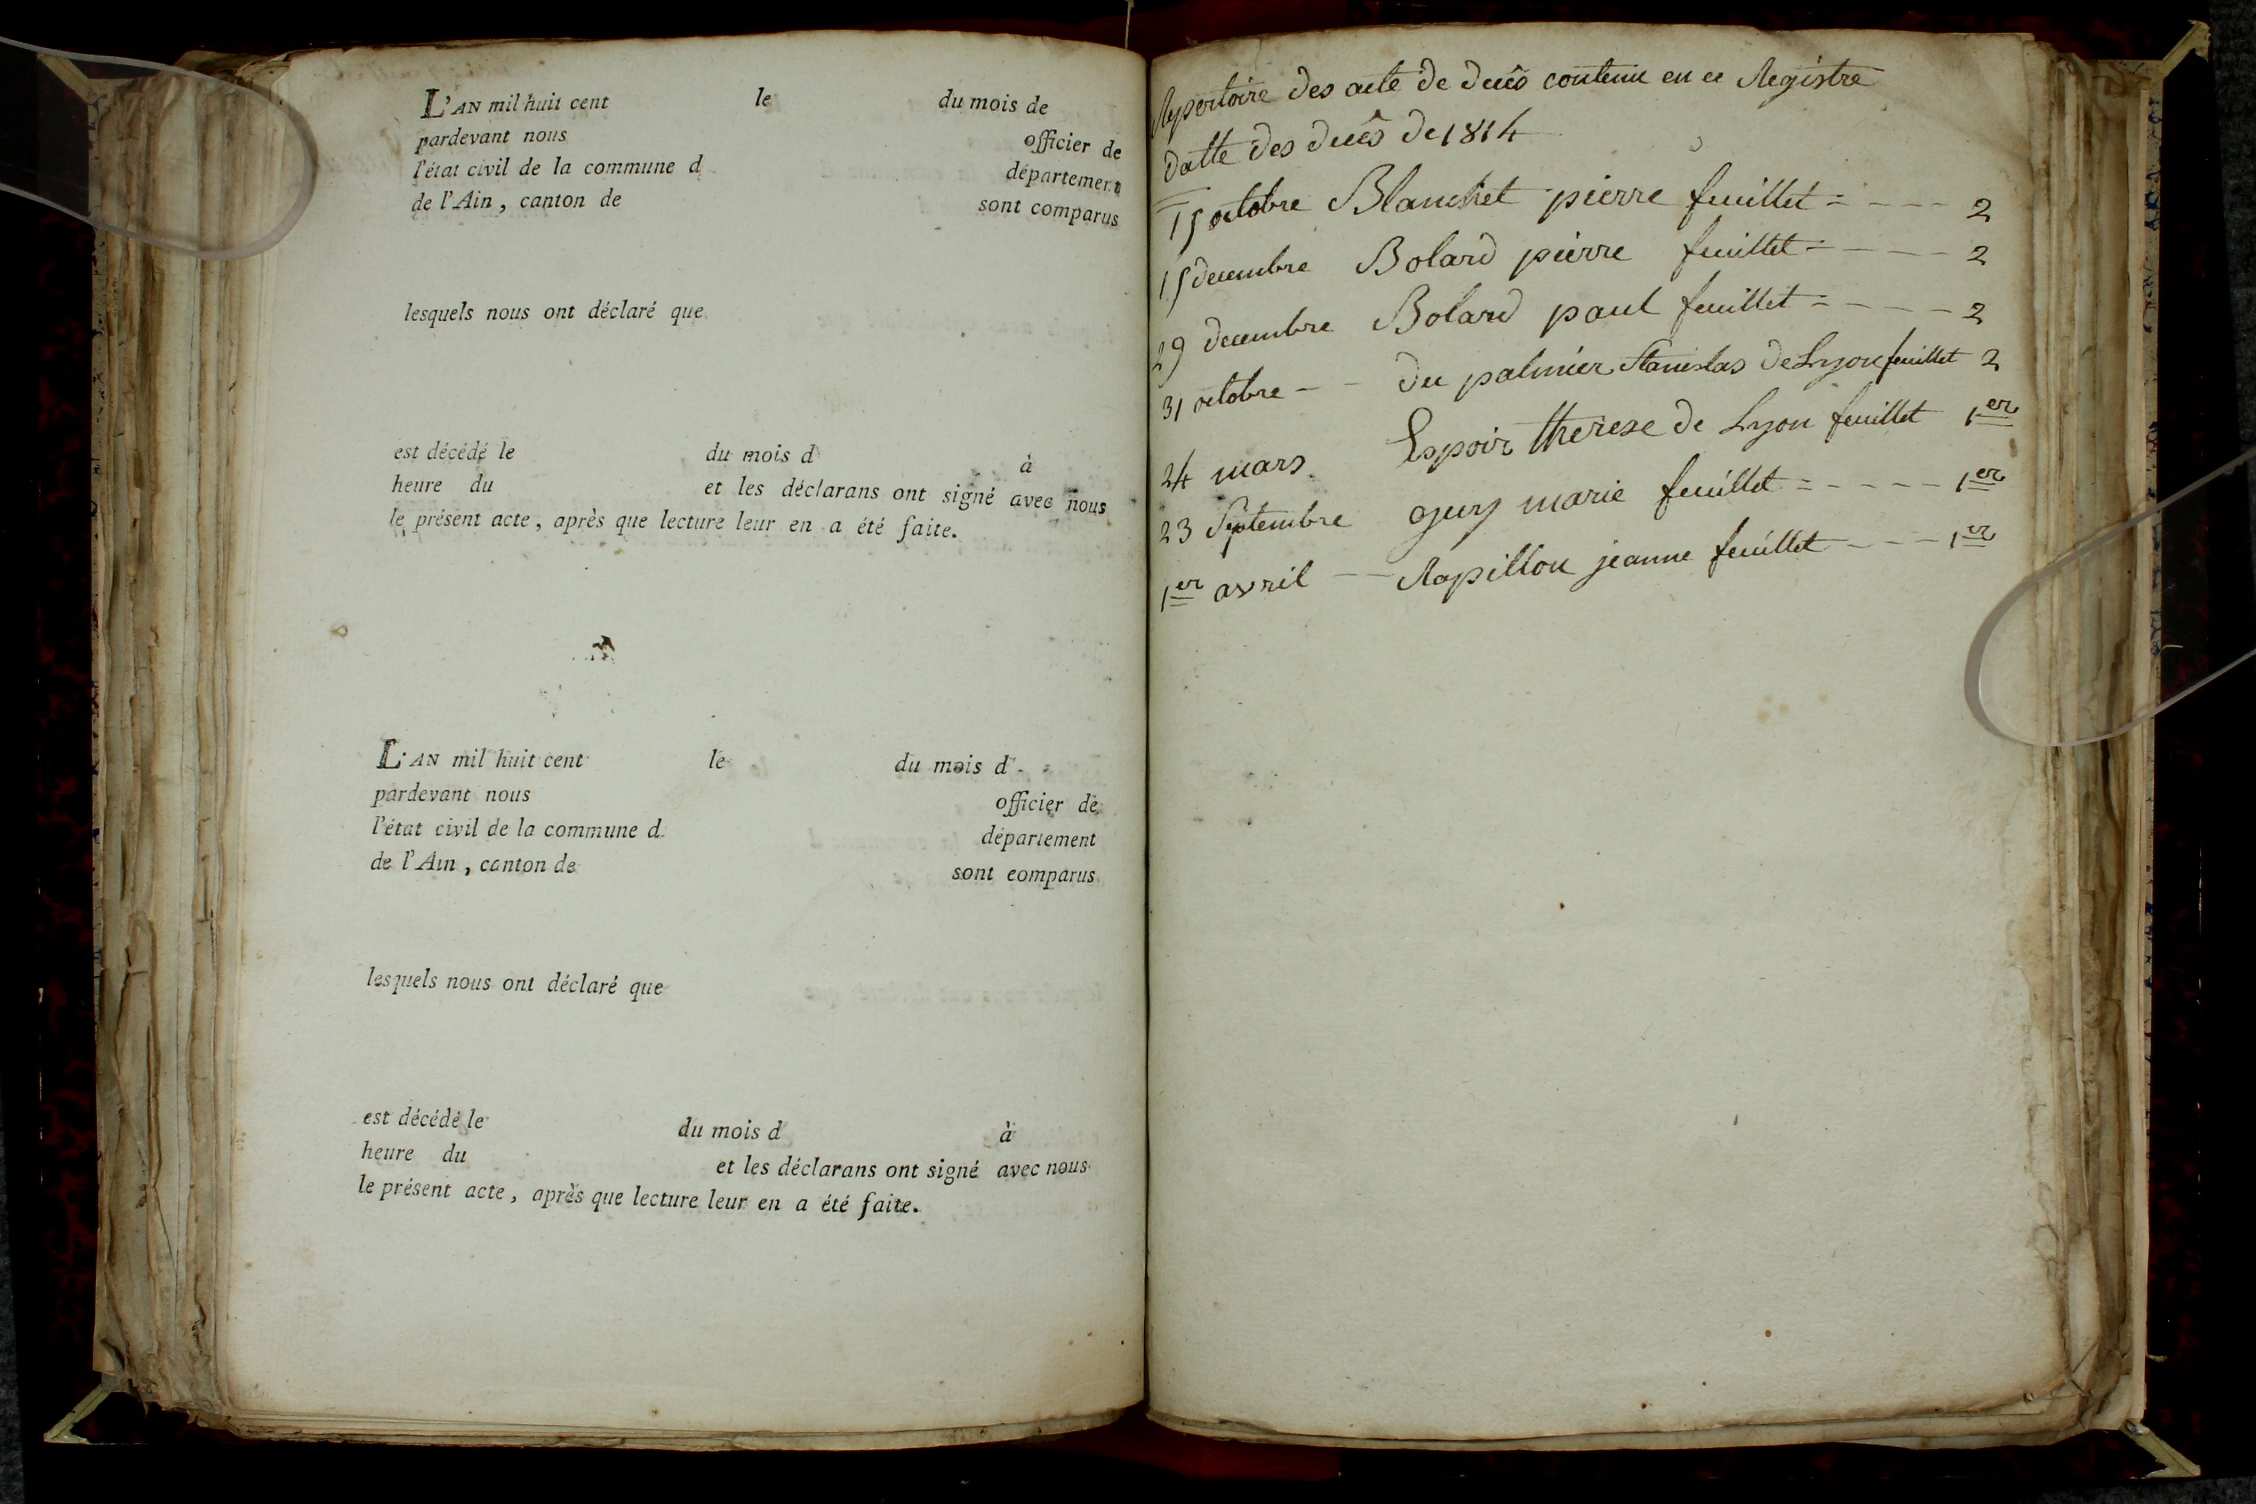 L'AN mil huit cent le du mois de
pardevant nous officier de
l'état civil de la commune d département
de l'Ain, canton de sont comparus
lesquels nous ont déclaré que
est décédé le du mois d à
heure du et les déclarans ont signé avec nous
le présent acte, après que lecture leur en a été faite.
L'AN mil huit cent le du mois d
pardevant nous officier de
l'état civil de la commune d département
de l'Ain, canton de sont comparus
lesquels nous ont déclaré que
est décédé le du mois d à
heure du et les déclarans ont signé avec nous
le présent acte, après que lecture leur en a été faite.
Repertoire des acte de decès contenu en ce Registre
datte des decês de 1814
15 octobre Blanchet pierre feuillet = - - - - 2
15 decembre Bolard pierre feuillet = - - - - 2
29 decembre Bolard paul feuillet = - - - - 2
31 octobre - - du palmier Stanislas de Lyon feuillet 2
24 mars Espoir therese de Lyon feuillet 1er
23 Septembre Guy marie feuillet = - - - - - 1er
1er avril - - Rapillon jeanne feuillet - - - - 1er